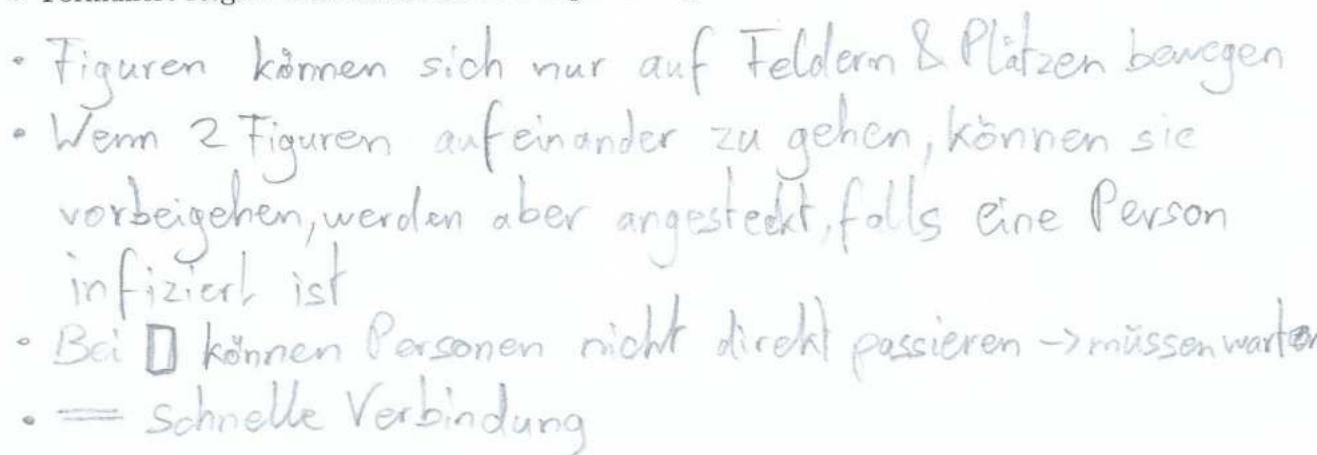 • Figuren können sich nur auf Feldern & Plätzen bewegen
• Wenn 2 Figuren aufeinander zu gehen, können sie
vorbeigehen, werden aber angesteckt, falls eine Person
infiziert ist
• Bei ▯ können Personen nicht direkt passieren -> müssen warten
• = schnelle Verbindung